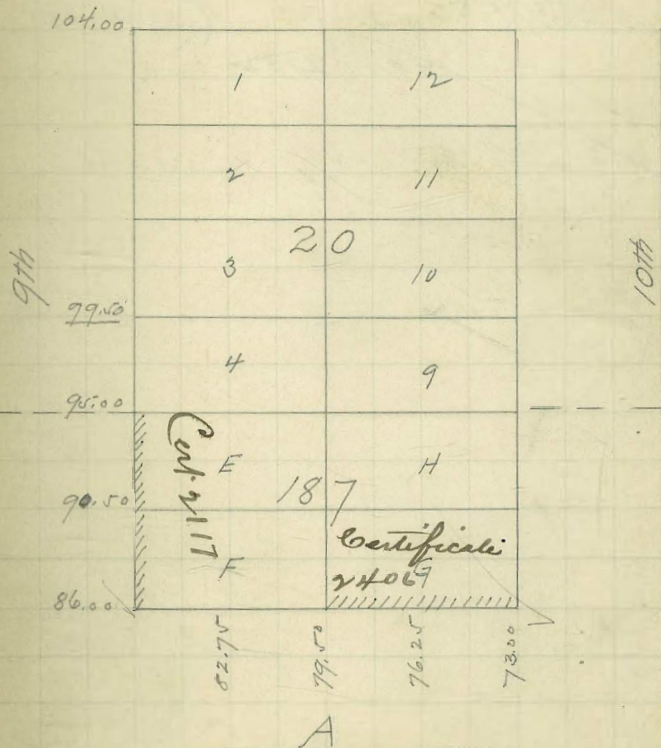 104.00
1 12
2 11
20
9th
3 10
10th
99.50
4 9
95.00
E H
Cert. 2117
187
90.50
Certificate
F
2406
G
86.00
82.75 79.50 76.25 73.00
A